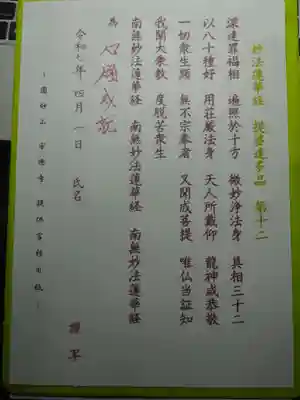 妙法蓮華経　提婆達多品　第十二
深達罪福相　遍照於十方　微妙浄法身　具相三十二
以八十種好　用荘厳法身　天人所戴仰　龍神咸恭敬
一切衆生類　無不宗奉者　又聞成菩提　唯仏当証知
我闡大乗教　度脱苦衆生
南無妙法蓮華経　南無妙法蓮華経　南無妙法蓮華経
為　心願成就
令和七年　四月　一日　氏名　謹写